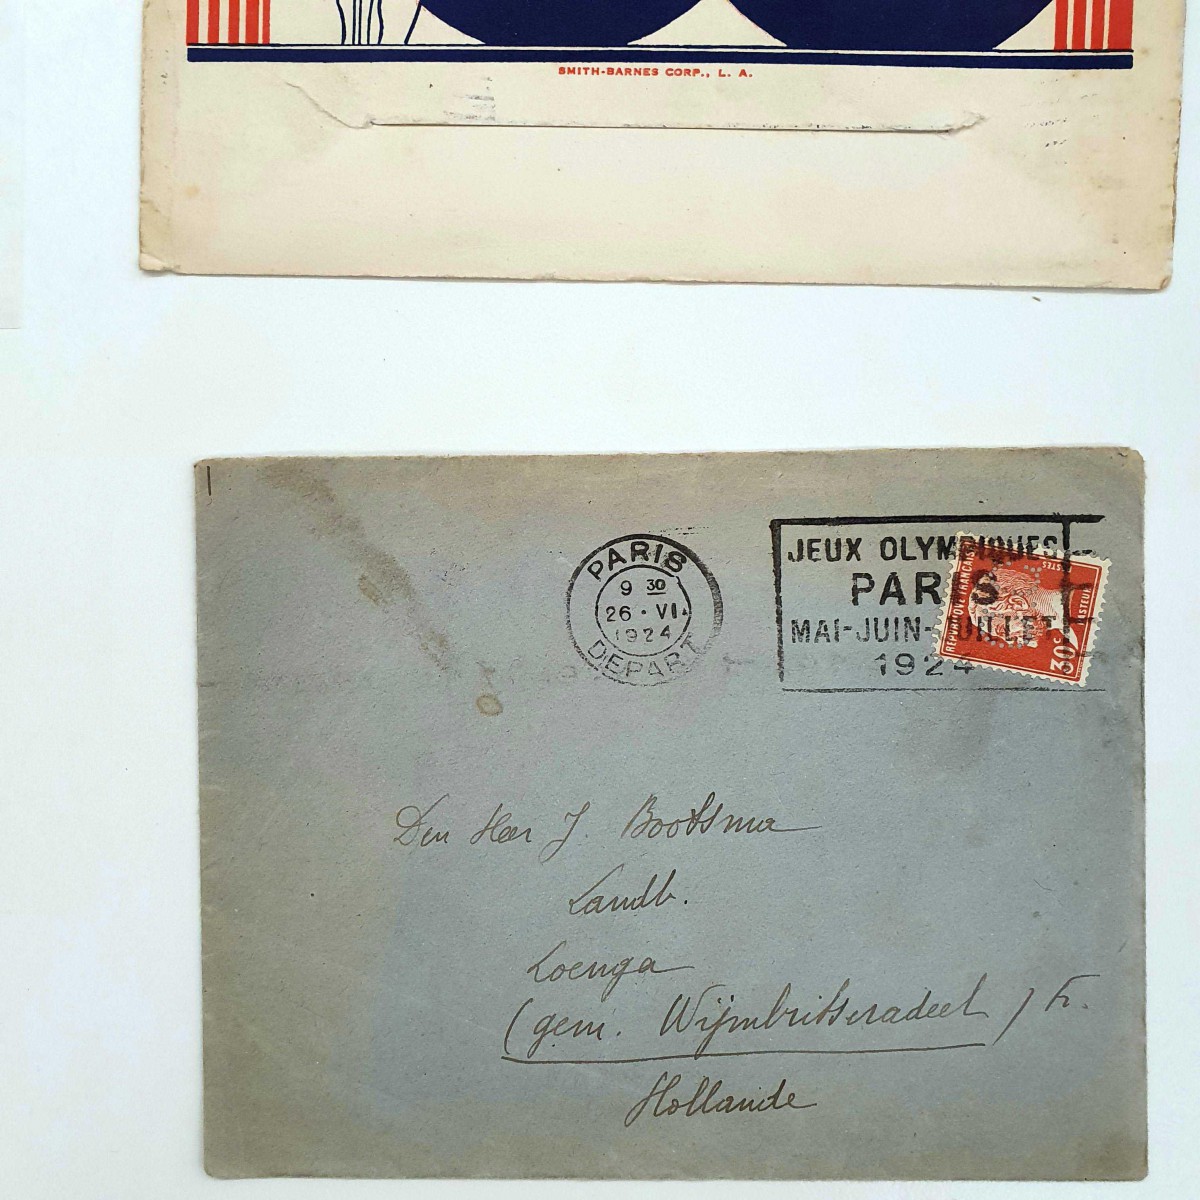 SMITH-BARNES CORP., L. A.
PARIS
9 30
26 · VI.
1924
DEPART
JEUX OLYMPIQUES
PARIS
MAI-JUIN-JUILLET
1924
REPUBLIQUE FRANÇAISE
POSTES
PASTEUR
30c
Den Heer J. Bootsma
Landb.
Loenga
(gem. Wijmbritseradeel) Fr.
Hollande